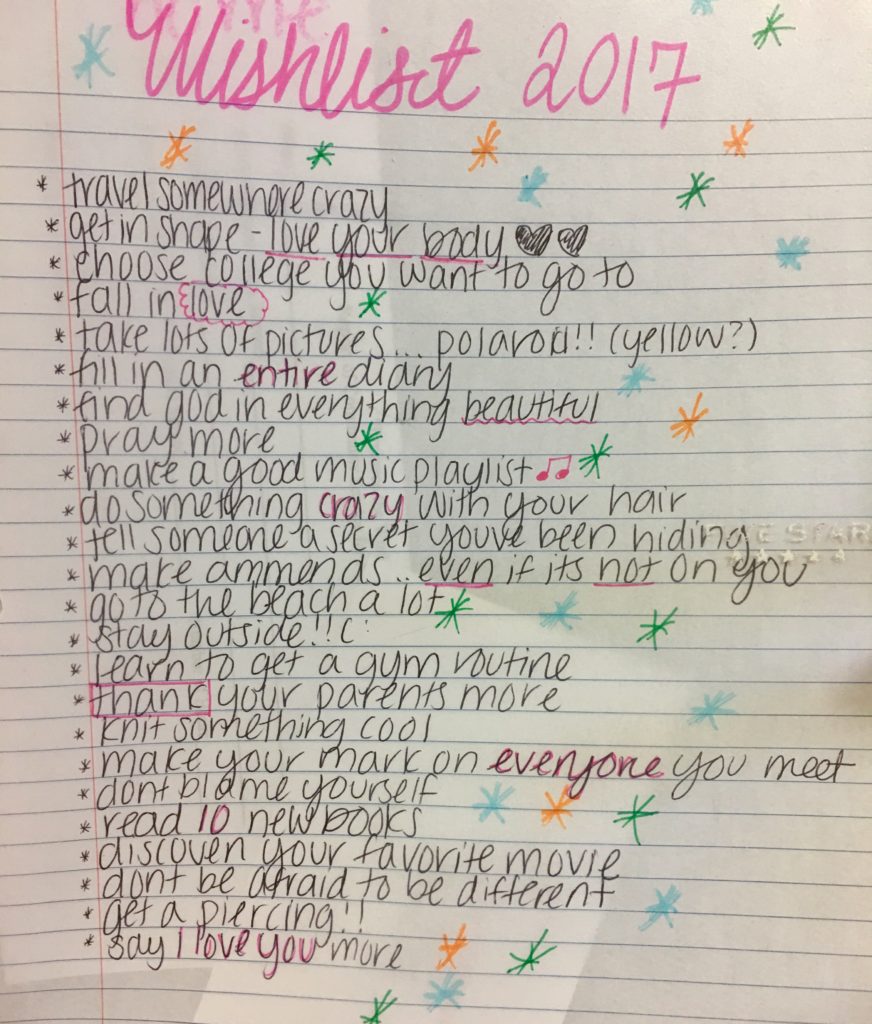 Wishlist 2017
* travel somewhere crazy
* get in shape - love your body
* choose college you want to go to
* fall in love
* take lots of pictures... polaroid!! (yellow?)
* fill in an entire diary
* find god in everything beautiful
* pray more
* make a good music playlist
* do something crazy with your hair
* tell someone a secret youve been hiding
* make ammends.. even if its not on you
* go to the beach a lot
* stay outside!! C:
* learn to get a gym routine
* thank your parents more
* knit something cool
* make your mark on everyone you meet
* dont blame yourself
* read 10 new books
* discover your favorite movie
* dont be afraid to be different
* get a piercing!!
* say I love you more